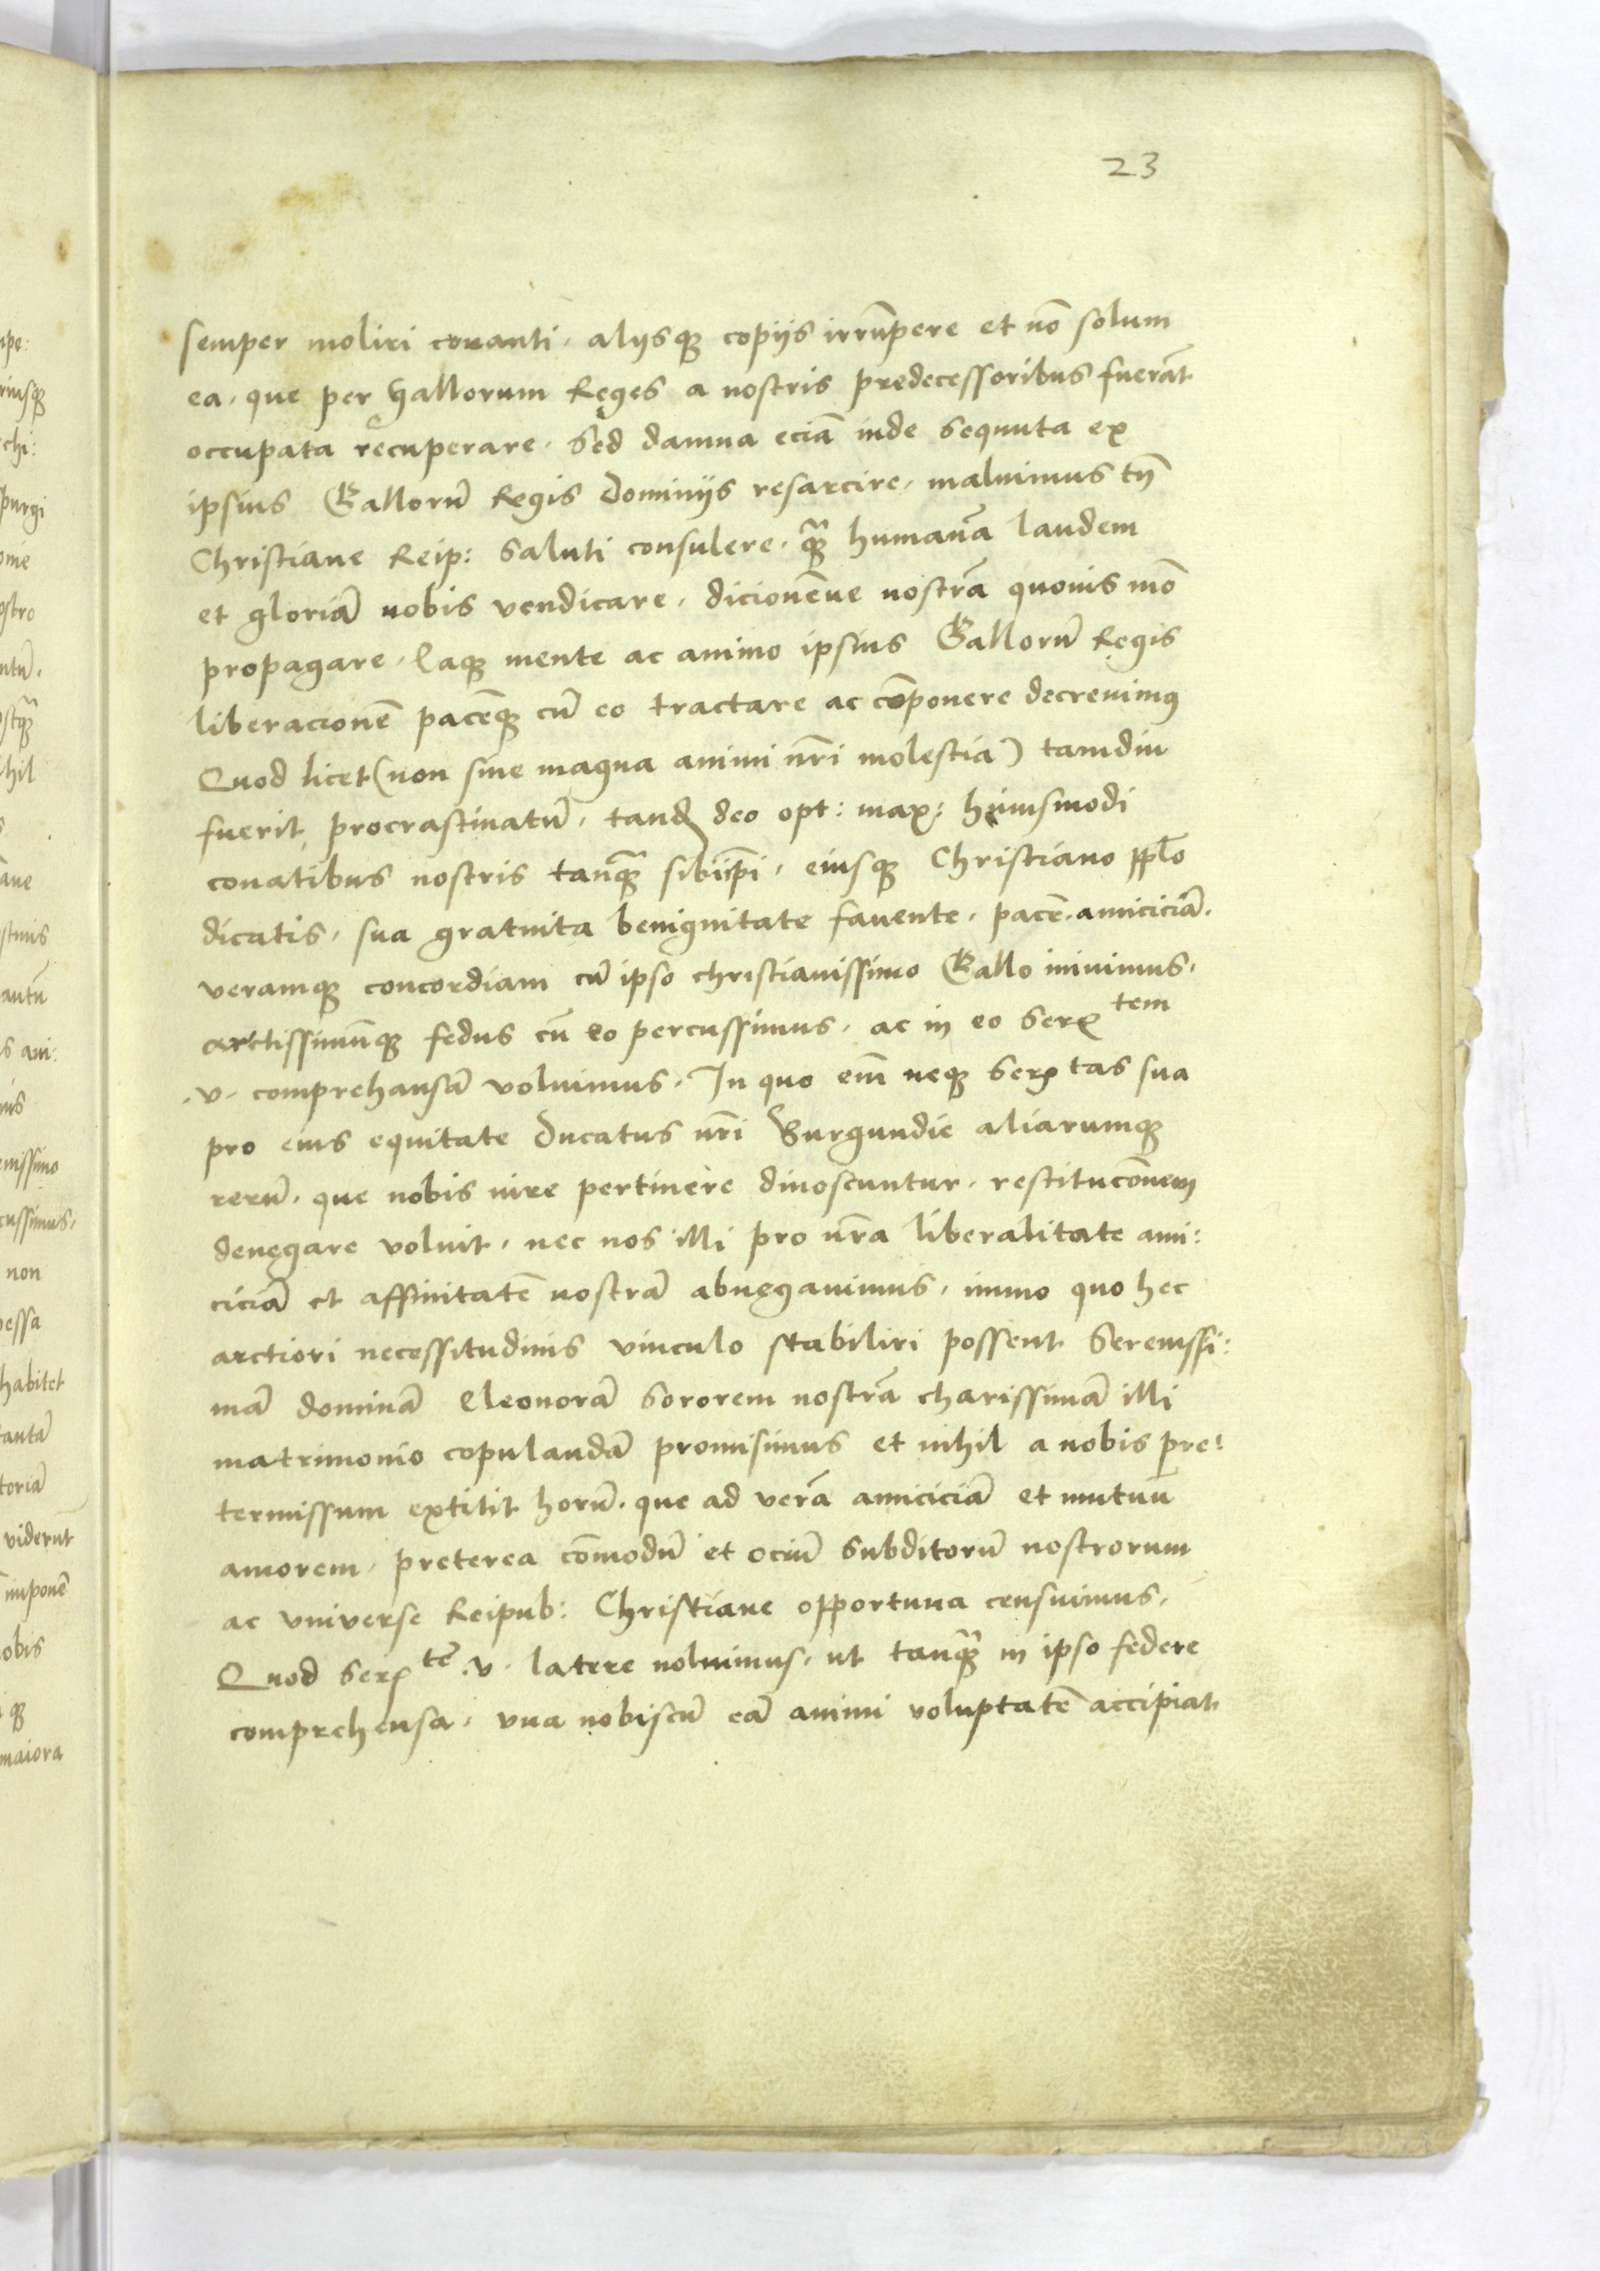 23
semper moliri conanti, alijsq copijs irrūpere et nō solum
ea, que per Gallorum Reges a nostris predecessoribus fuerāt
occupata recuperare, Sed damna eciā inde sequuta ex
ipsius Gallorū Regis Dominijs resarcire, maluimus tn̄
Christiane Reip: saluti consulere, quā humanā laudem
et gloriā nobis vendicare, dicionēue nostrā quouis mō
propagare, Eaq mente ac animo ipsius Gallorū Regis
liberacionē pacēq cū eo tractare ac cōponere decreuimus
Quod licet (non sine magna animi nr̄i molestia) tamdiu
fuerit procrastinatū, tand deo opt: max: huiusmodi
conatibus nostris tanquā sibiip̄i, eiusq Christiano pp̄lo
dicatis, sua gratuita benignitate fauente, pacē, amiciciā,
veramq concordiam cū ipso christianissimo Gallo iniuimus,
arctissimūq fedus cū eo percussimus, ac in eo Serᵗᵉᵐ
.v. comprehansā voluimus, In quo em̄ neq Ser tas sua
pro eius equitate Ducatus nr̄i Burgundie aliarumq
rerū, que nobis iure pertinere dinoscuntur, restitucōnem
denegare voluit, nec nos illi pro nr̄a liberalitate ami:
ciciā et affinitatē nostrā abnegauimus, immo quo hec
arctiori necessitudinis vinculo stabiliri possent Serenissi:
mā dominā Eleonorā Sororem nostrā charissimā illi
matrimonio copulandā promisimus et nihil a nobis pre:
termissum extitit horū, que ad verā amiciciā et mutuū
amorem, preterea cōmodū et ociū subditorū nostrorum
ac vniuerse Reipub: Christiane opportuna censuimus,
Quod Serᵗᵉ̄ .v. latere noluimus, ut tanquā in ipso federe
comprehensa, vna nobiscū eā animi voluptatē accipiat